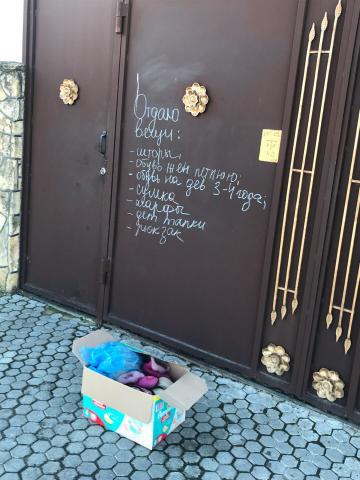 Отдаю
вещи:
- шторы,
- обувь жен летнюю;
- обувь на дев 3-4 года;
- сумка
- шарфы
- дет тапки
- рюкзак